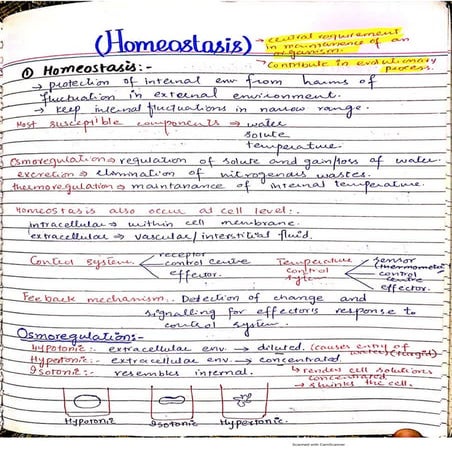 (Homeostasis)
→ central requirement
in maintenance of an
organism.
→ Contribute in evolutionary
process.
① Homeostasis:-
→ protection of internal env from harms of
fluctuation in external environment.
→ keep internal fluctuations in narrow range.
Most susceptible components → water
solute
temperature.
Osmoregulation → regulation of solute and gain/loss of water.
excretion → elimination of nitrogenous wastes.
thermoregulation → maintanance of internal temperature.
Homeostasis also occur at cell level:.
intracellular → within cell membrane.
extracellular → vascular/interstitial fluid.
Control system. receptor
control centre
effector.
Temperature control system
sensor
(thermometer
control
centre
effector.
Feeback mechanism.. Detection of change and
signalling for effector's response to
control system.
Osmoregulation:-
Hypotonic:- extracellular env → diluted. (causes entry of
water) (turgid)
Hypertonic:- extracellular env → concentrated.
Isotonic:- resembles internal.
↳ renders cell solutions
concentrated
→ shrinks the cell.
Hypotonic Isotonic Hypertonic
Scanned with CamScanner